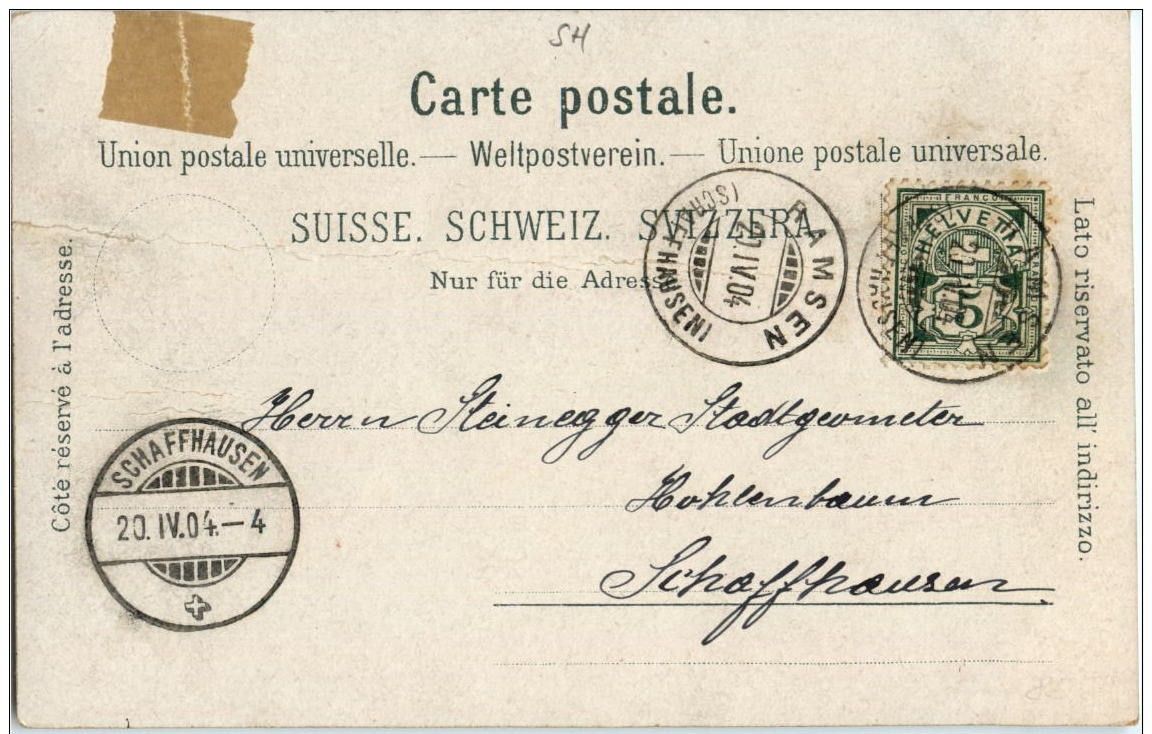 SH
Carte postale.
Union postale universelle. — Weltpostverein. — Unione postale universale.
SUISSE. SCHWEIZ. SVIZZERA
Nur für die Adresse
RAMSEN
(SCHAFFHAUSEN)
20.IV.04
FRANCO
HELVETIA
5
RAMSEN
Côté réservé à l'adresse.
Lato riservato all' indirizzo.
Herrn Steinegger Stadtgeometer
Hohlenbaum
Schaffhausen
SCHAFFHAUSEN
20.IV.04.–4